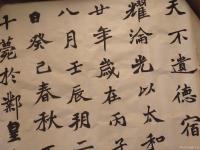 天不遺德宿
耀淪光以太和
廿年歲在丙子
八月壬辰朔二
日癸巳春秋
千薨於鄴皇